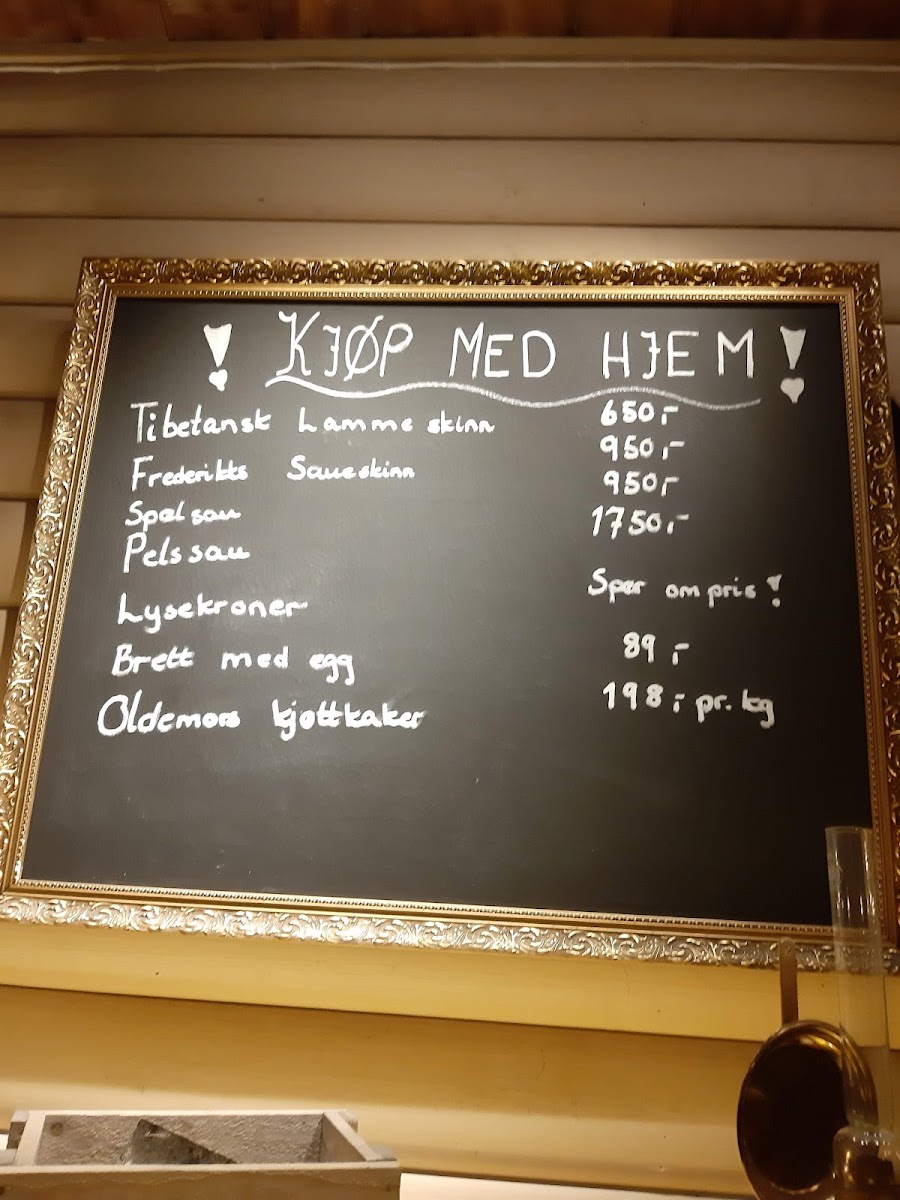 ! KJØP MED HJEM !
Tibetansk Lammeskinn 650,-
Frederikks Saueskinn 950,-
Spælsau 950,-
Pelssau 1750,-
Lysekroner Spør om pris!
Brett med egg 89,-
Oldemors kjøttkaker 198,- pr. kg